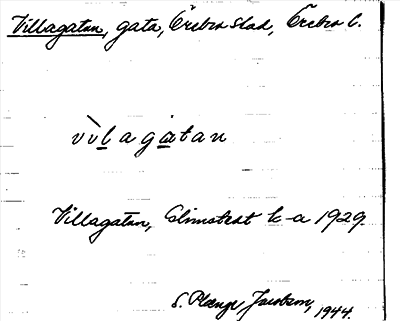 Villagatan, gata, Örebro stad, Örebro l.
vìlagatan
Villagatan, Elmstedt k-a 1929.
S. Plange Jacobson, 1944.